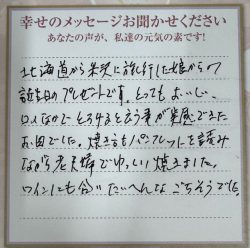 幸せのメッセージお聞かせください
あなたの声が、私達の元気の素です!
北海道から来た旅行した娘からの
誕生日のプレゼントです。とってもおいしい、
口のなかでとろけると言う事が実感できた
お肉でした。焼き方もパンフレットを読み
ながら老夫婦で楽しい焼きました。
ワインにも合いたいへんなごちそうでした